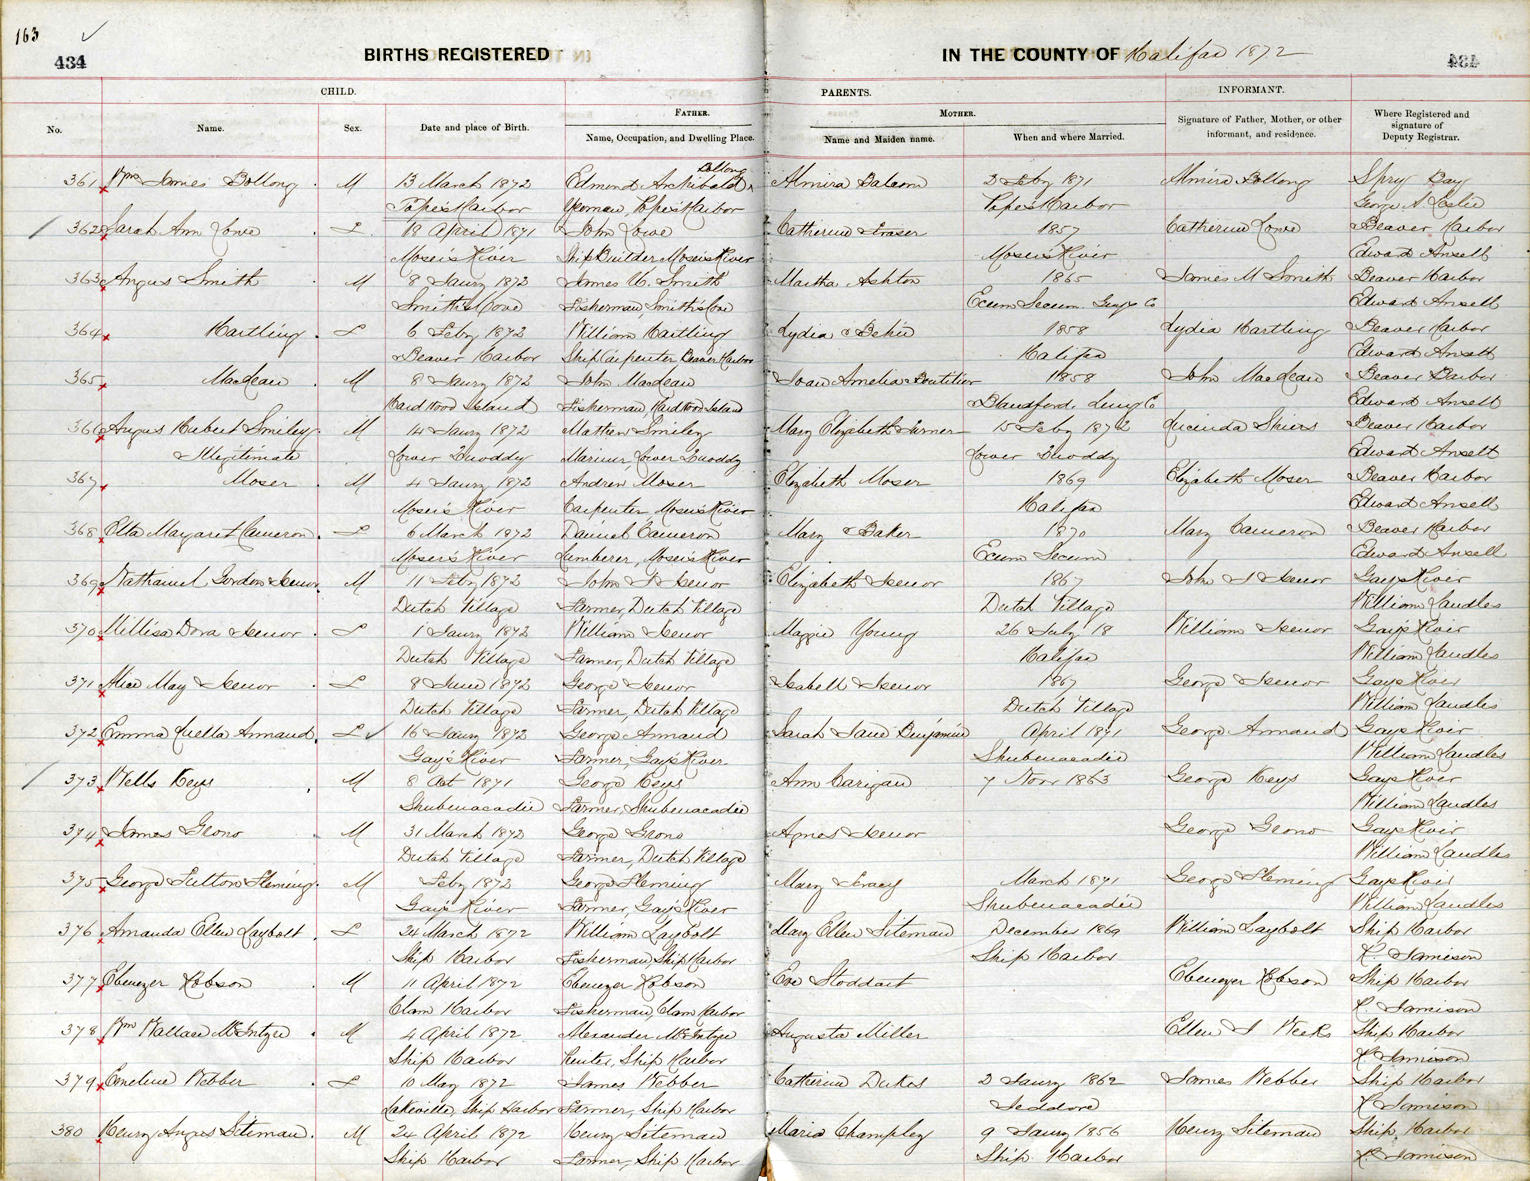 163
434 BIRTHS REGISTERED IN THE COUNTY OF Halifax 1872
CHILD. PARENTS. INFORMANT.
No. Name. Sex. Date and place of Birth. FATHER. Name, Occupation, and Dwelling Place. MOTHER. Name and Maiden name. When and where Married. Signature of Father, Mother, or other informant, and residence. Where Registered and signature of Deputy Registrar.
Bollong
361 Wm James Bollong M 13 March 1872 Edmond Archibald Almira Balcom 2 Feby 1871 Almira Bollong Spry Bay
Popes Harbor Yeoman, Popes Harbor Popes Harbor George A Leslie
362 Sarah Ann Lowe F 18 April 1871 John Lowe Catherine Fraser 1857 Catherine Lowe Beaver Harbor
Mosers River Ship Builder Mosers River Mosers River Edward Ansell
363 Angus Smith M 8 Jany 1872 James W. Smith Martha Ashton 1865 James M Smith Beaver Harbor
Smith's Cove Fisherman, Smith's Cove Ecum Secum Guys Co Edward Ansell
364 Hartling F 6 Feby 1872 William Hartling Lydia 1858 Lydia Hartling Beaver Harbor
Beaver Harbor Ship Carpenter Beaver Harbor Halifax Edward Ansell
365 MacLean M 8 Jany 1872 John MacLean Joan Amelia Boutilier 1858 John MacLean Beaver Harbor
Hard Wood Island Fisherman, Hard Wood Island Blandford, Lung Co Edward Ansell
366 Angus Hubert Smiley M 14 Jany 1872 Mathew Smiley Mary Elizabeth Turner 15 Feby 1872 Lucinda Beaver Harbor
Illegitimate Lower Quoddy Mariner, Lower Quoddy Lower Quoddy Edward Ansell
367 Moser M 4 Jany 1872 Andrew Moser Elizabeth Moser 1869 Elizabeth Moser Beaver Harbor
Mosers River Carpenter Mosers River Halifax Edward Ansell
368 Etta Margaret Cameron F 6 March 1872 Daniel Cameron Mary Baker 1870 Mary Cameron Beaver Harbor
Moser's River Lumberer, Moser's River Ecum Secum Edward Ansell
369 Nathaniel Gordon Isenor M 11 Feby 1872 John S Isenor Elizabeth Isenor 1867 John S Isenor Gays River
Dutch Village Farmer, Dutch Village Dutch Village William Landles
370 Millisa Dora Isenor F 1 Jany 1872 William Isenor Maggie Young 26 July 18 William Isenor Gays River
Dutch Village Farmer, Dutch Village Halifax William Landles
371 Alice May Isenor F 8 June 1872 George Isenor Isabell Isenor 1867 George Isenor Gays River
Dutch Village Farmer, Dutch Village Dutch Village William Landles
372 Emma Luella Annand F 16 Jany 1872 George Annand Sarah Jane Benjamin April 1871 George Annand Gays River
Gay's River Farmer, Gay's River Shubenacadie William Landles
373 Wells Keys M 8 Oct 1871 George Keys Ann Carigan 7 Novr 1863 George Keys Gays River
Shubenacadie Farmer, Shubenacadie William Landles
374 James Grono M 31 March 1872 George Grono Agnes Isenor George Grono Gays River
Dutch Village Farmer, Dutch Village William Landles
375 George Sutton Fleming M Feby 1872 George Fleming Mary Tracy March 1871 George Fleming Gays River
Gay's River Farmer, Gay's River Shubenacadie William Landles
376 Amanda Ellen Laybolt F 24 March 1872 William Laybolt Mary Ellen Siteman December 1869 William Laybolt Ship Harbor
Ship Harbor Fisherman, Ship Harbor Ship Harbor R. Jamison
377 Ebenezer Hobson M 11 April 1872 Ebenezer Hobson Eve Stoddart Ebenezer Hobson Ship Harbor
Clam Harbor Fisherman, Clam Harbor R. Jamison
378 Wm Wallace McIntyre M 4 April 1872 Alexander McIntyre Augusta Miller Ellen J Weeks Ship Harbor
Ship Harbor Hunter, Ship Harbor R. Jamison
379 Emeline Webber F 10 May 1872 James Webber Catherine Dukes 2 Jany 1862 James Webber Ship Harbor
Lakeville, Ship Harbor Farmer, Ship Harbor Jeddore R. Jamison
380 Henry Angus Siteman M 24 April 1872 Henry Siteman Maria Champley 9 Jany 1856 Henry Siteman Ship Harbor
Ship Harbor Farmer, Ship Harbor Ship Harbor R. Jamison